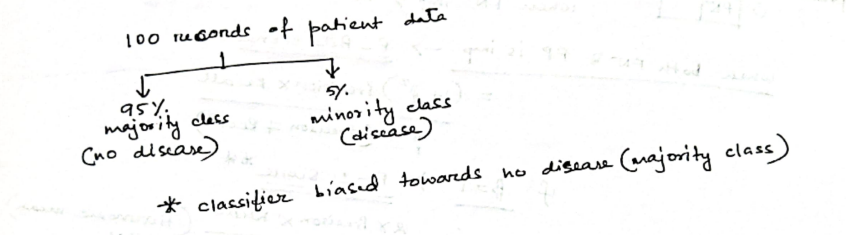 100 records of patient data
95%. 5%.
majority class minority class
(no disease) (disease)
* classifier biased towards no disease (majority class)